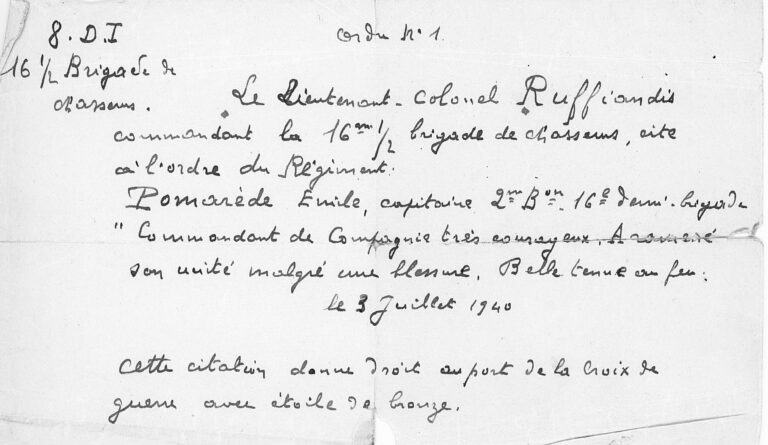 8. D. I
Ordre N° 1
16 1/2 Brigade de
chasseurs.
Le Lieutenant-Colonel Ruffiandis
commandant la 16ème 1/2 brigade de chasseurs, cite
à l'ordre du Régiment.
Pomarède Emile, capitaine 2me Bon. 16e demi-brigade
" Commandant de Compagnie très courageux. A ramené
son unité malgré une blessure. Belle tenue au feu.
le 3 Juillet 1940
Cette citation donne droit au port de la Croix de
guerre avec étoile de bronze.